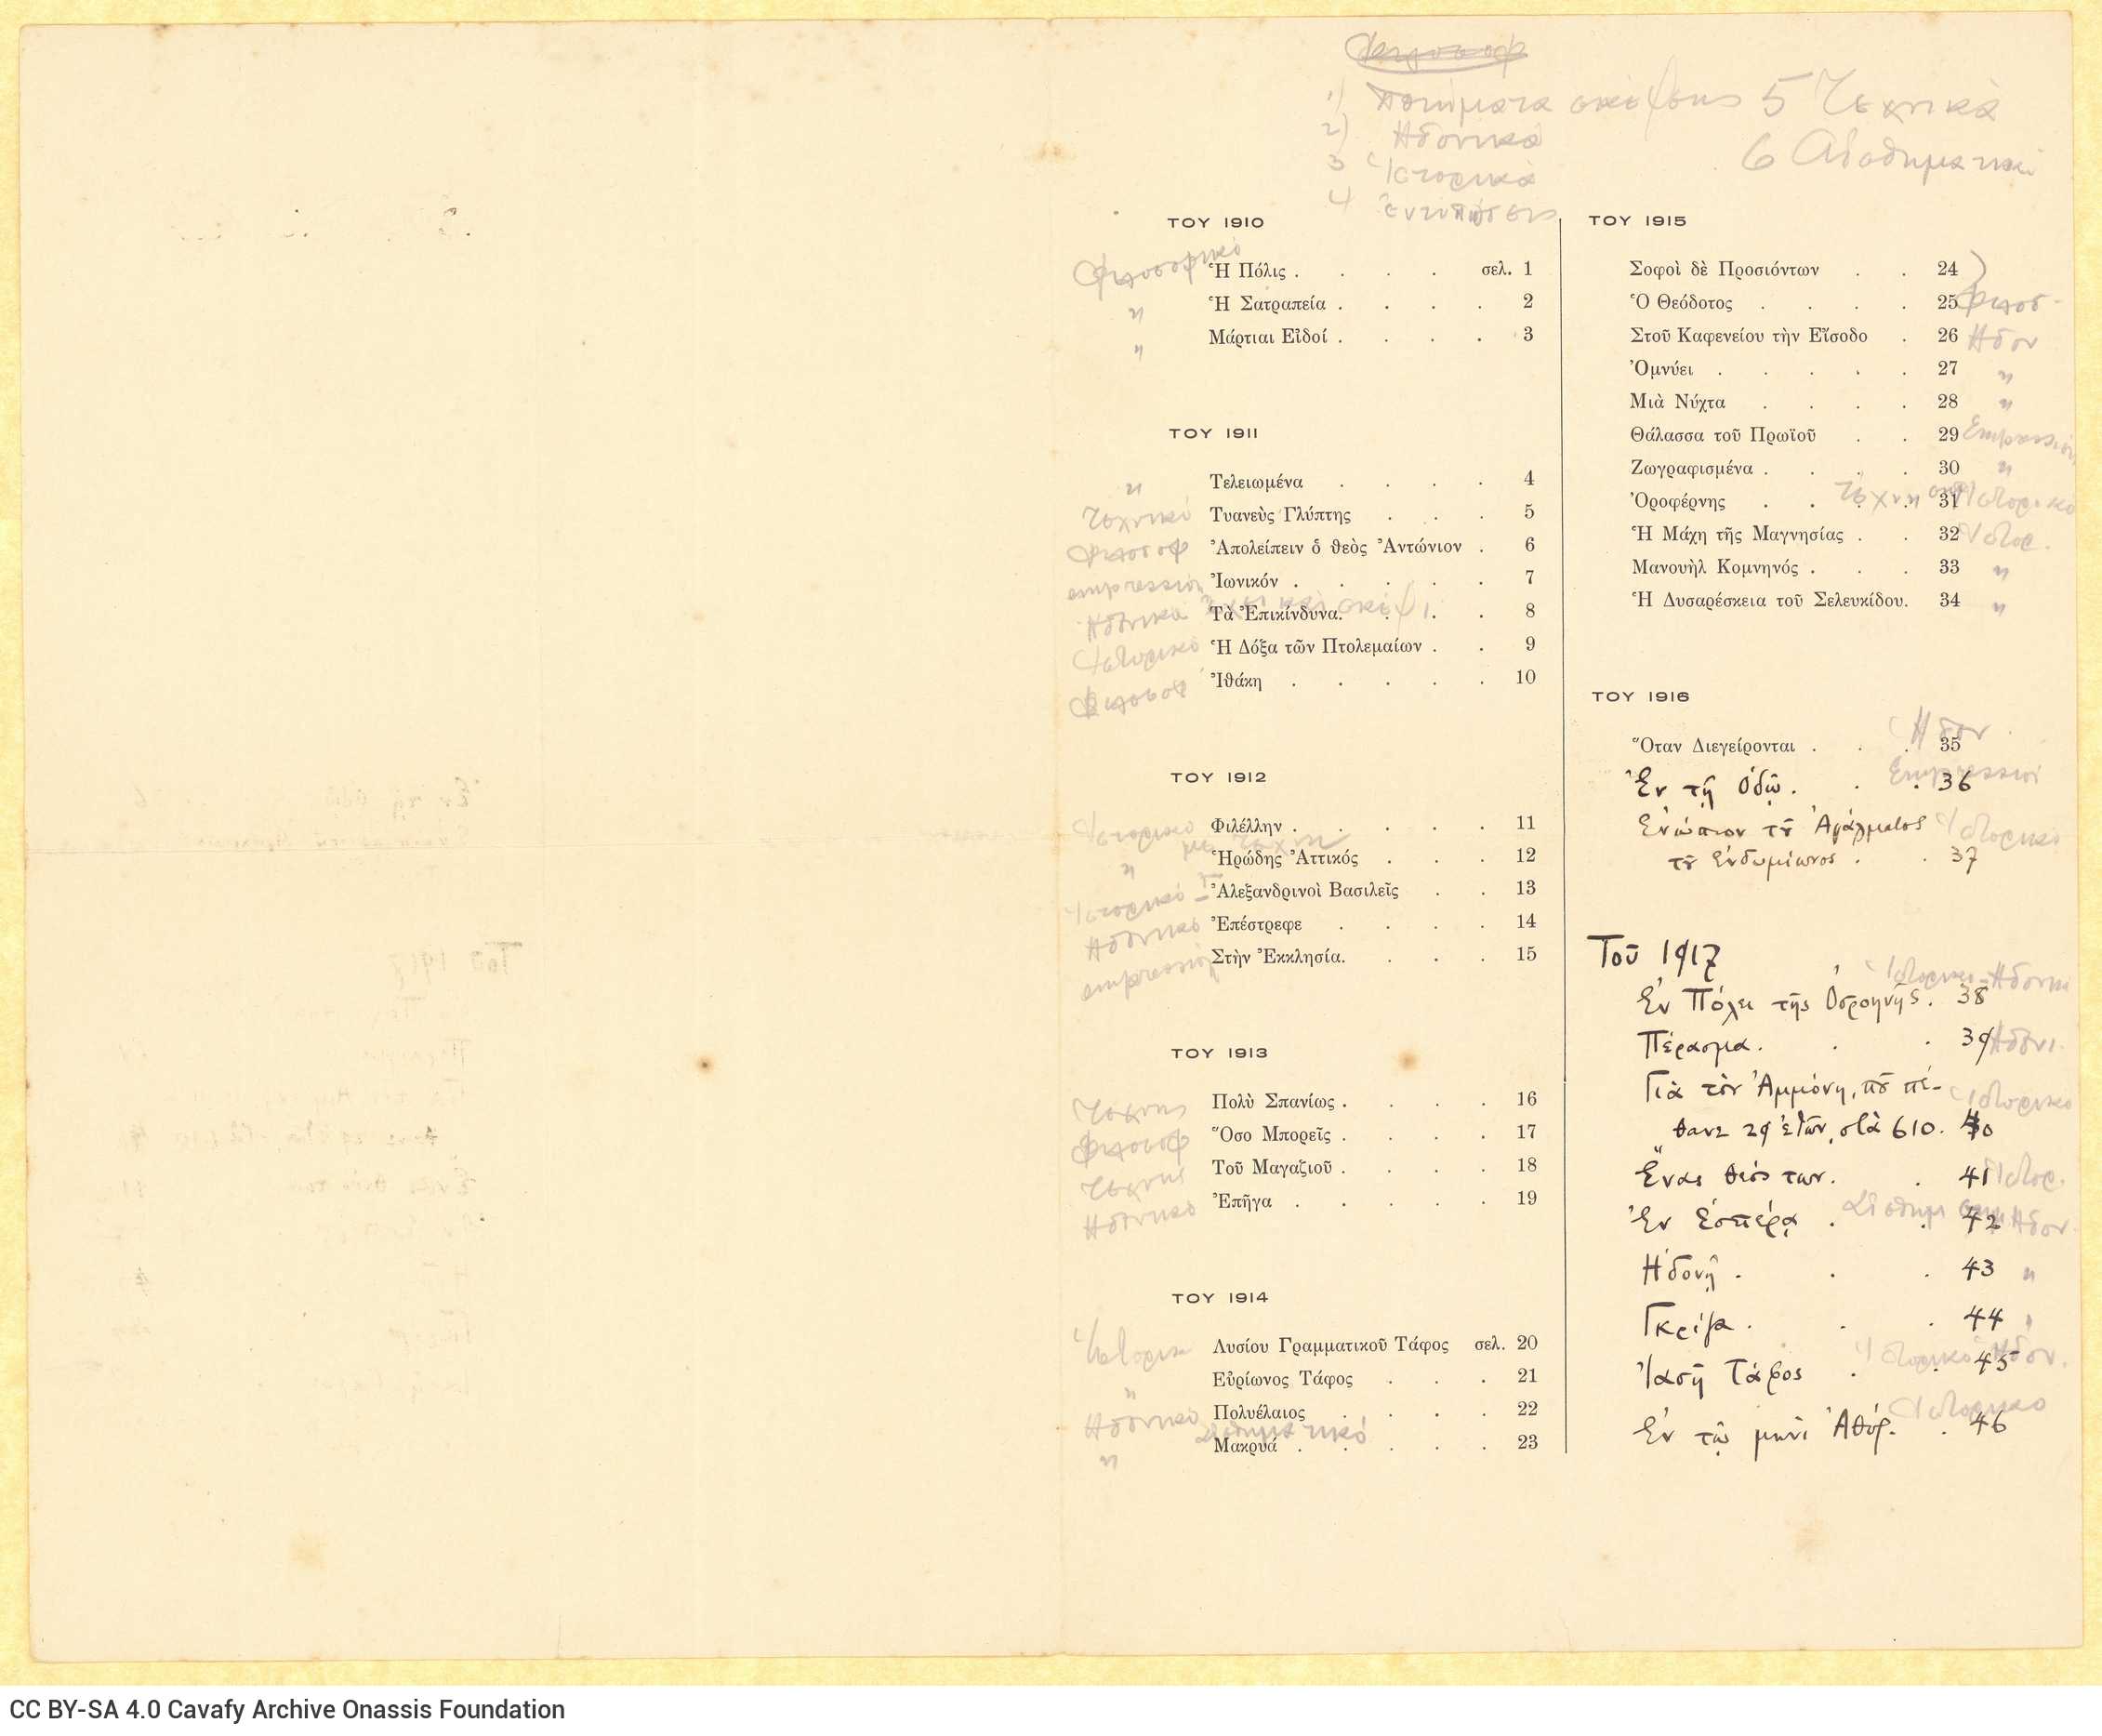 Φιλοσοφ
1) Ποιήματα σκέψεως
2) Ηδονικά
3 Ἱστορικά
4 ἐντυπώσεις
5 Τεχνικά
6 Αἰσθηματικά
ΤΟΥ 1910
Φιλοσοφικό Ἡ Πόλις . . . . σελ. 1
" Ἡ Σατραπεία . . . . 2
" Μάρτιαι Εἰδοί . . . . 3
ΤΟΥ 1911
" Τελειωμένα . . . . 4
τεχνικό Τυανεὺς Γλύπτης . . . 5
Φιλοσοφ Ἀπολείπειν ὁ θεὸς Ἀντώνιον . 6
empression Ἰωνικόν . . . . . 7
Ηδονικά ἔχει καὶ σκέψι
Τὰ Ἐπικίνδυνα. . . . 8
Ἱστορικό Ἡ Δόξα τῶν Πτολεμαίων . . 9
Φιλοσοφ Ἰθάκη . . . . . 10
ΤΟΥ 1912
Ἱστορικό Φιλέλλην . . . . . 11
με τέχνη
" Ἡρώδης Ἀττικός . . . 12
Ἱστορικό Ἀλεξανδρινοὶ Βασιλεῖς . . 13
Ηδονικό Ἐπέστρεφε . . . . 14
empression Στὴν Ἐκκλησία. . . . 15
ΤΟΥ 1913
τέχνης Πολὺ Σπανίως . . . . 16
Φιλοσοφ Ὅσο Μπορεῖς . . . . 17
τέχνης Τοῦ Μαγαζιοῦ . . . . 18
Ηδονικό Ἐπῆγα . . . . . 19
ΤΟΥ 1914
Ἱστορικ Λυσίου Γραμματικοῦ Τάφος σελ. 20
" Εὐρίωνος Τάφος . . . 21
Ηδονικό Πολυέλαιος . . . . 22
αἰσθηματικό
" Μακρυά . . . . . 23
ΤΟΥ 1915
Σοφοὶ δὲ Προσιόντων . . 24 )
Ὁ Θεόδοτος . . . . 25 Φιλοσ-
Στοῦ Καφενείου τὴν Εἴσοδο . 26 Ηδον
Ὀμνύει . . . . . 27 "
Μιὰ Νύχτα . . . . 28 "
Θάλασσα τοῦ Πρωϊοῦ . . 29 Empression
Ζωγραφισμένα . . . . 30 "
Ὀροφέρνης . . . . 31 Ἱστορικό
Ἡ Μάχη τῆς Μαγνησίας . . 32 Ἱστορ.
Μανουὴλ Κομνηνός . . . 33 "
Ἡ Δυσαρέσκεια τοῦ Σελευκίδου. 34 "
ΤΟΥ 1916
Ὅταν Διεγείρονται . . . 35 Ηδον
Ἐν τῇ Ὁδῷ . . . 36 Empressioi
Ἐνώπιον τοῦ Ἀγάλματος Ἱστορικό
τοῦ Ἐνδυμίωνος . . 37
Τοῦ 1917
Ἱστορικο-Ηδονικ
Ἐν Πόλει τῆς Ὀσροηνῆς . 38
Πέρασμα . . . 39 Ηδονι.
Γιὰ τὸν Ἀμμόνη, ποῦ πέ- Ἱστορικό
θανε 29 ἐτῶν, στὰ 610. 40
Ἕνας θεός των. . 41 Ἱστορ.
Ἐν Ἑσπέρᾳ . . 42 Ηδον.
Ἡδονῇ . . . 43 "
Γκρίζα . . . 44 "
Ἰασῆ Τάφος . . 45 Ἱστορικό Ηδον.
Ἐν τῷ μηνὶ Ἀθύρ. . 46 Ἱστορικο
CC BY-SA 4.0 Cavafy Archive Onassis Foundation